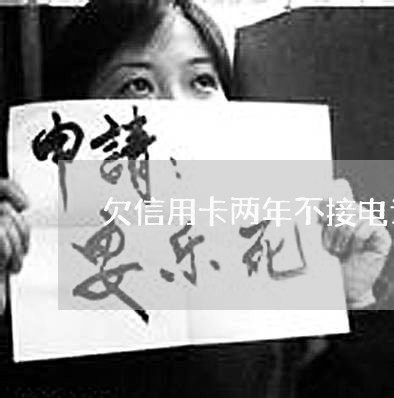 申請：
欠信用卡两年不接电
安乐死